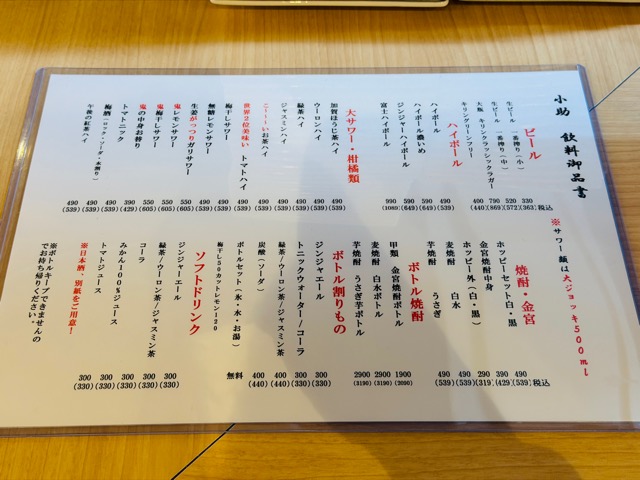 小助 飲料御品書
※サワー類は大ジョッキ500ml
ビール
生ビール 一番搾り(小) 330 (363)税込
生ビール 一番搾り(中) 520 (572)
大瓶 キリンクラシックラガー 790 (869)
キリングリーンフリー (440)
ハイボール
ハイボール 490 (539)
ハイボール濃いめ 590 (649)
ジンジャーハイボール 590 (649)
富士ハイボール 990 (1089)
大サワー・柑橘類
加賀ほうじ茶ハイ 490 (539)
ウーロンハイ 490 (539)
緑茶ハイ 490 (539)
ジャスミンハイ 490 (539)
こーーーいお茶ハイ 490 (539)
世界2位美味いトマトハイ 490 (539)
梅干しサワー 490 (539)
無糖レモンサワー 490 (539)
生姜がっつりガリサワー 490 (539)
鬼レモンサワー 550 (605)
鬼梅干しサワー 550 (605)
鬼の中身お替り 550 (605)
トマトニック 390 (429)
梅酒(ロック・ソーダ・水割り) 490 (539)
午後の紅茶ハイ 490 (539)
焼酎・金宮
ホッピーセット白・黒 490 (539)税込
金宮焼酎中身 390 (429)
ホッピー外(白・黒) 290 (319)
麦焼酎 白水 490 (539)
芋焼酎 うさぎ 490 (539)
ボトル焼酎
甲類 金宮焼酎ボトル 1900 (2090)
麦焼酎 白水ボトル 2900 (3190)
芋焼酎 うさぎ芋ボトル 2900 (3190)
ボトル割りもの
ジンジャエール 300 (330)
トニックウォーター/コーラ 300 (330)
緑茶/ウーロン茶/ジャスミン茶 400 (440)
炭酸(ソーダ) 400 (440)
ボトルセット(氷・水・お湯) 無料
梅干し50カットレモン120
ソフトドリンク
ジンジャーエール 300 (330)
緑茶/ウーロン茶/ジャスミン茶 300 (330)
コーラ 300 (330)
みかん100%ジュース 300 (330)
トマトジュース 300 (330)
※日本酒、別紙をご用意!
※ボトルキープできませんの
でお持ち帰りください。